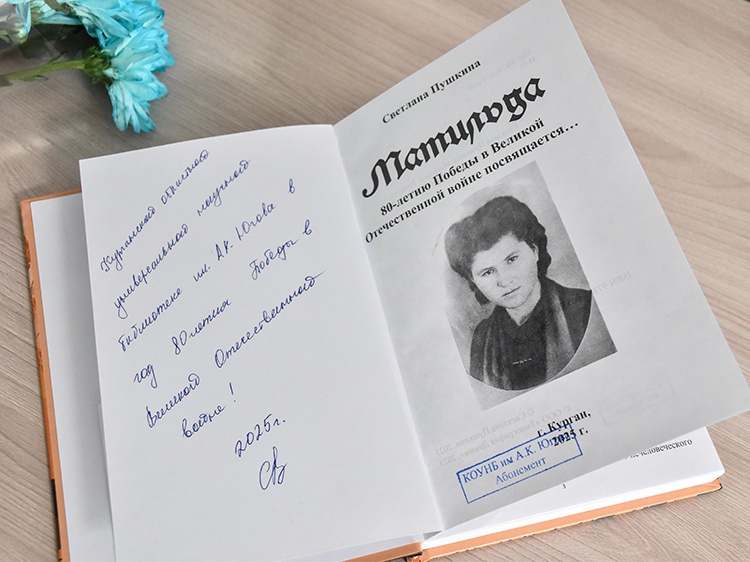 Курганской областной
универсальной научной
библиотеке им. А.К. Югова в
год 80-летия Победы в
Великой Отечественной
войне!
2025г.
Светлана Пушкина
Матильда
80-летию Победы в Великой
Отечественной войне посвящается...
г. Курган,
2025 г.
КОУНБ им А.К. Югова
Абонемент
человеческого